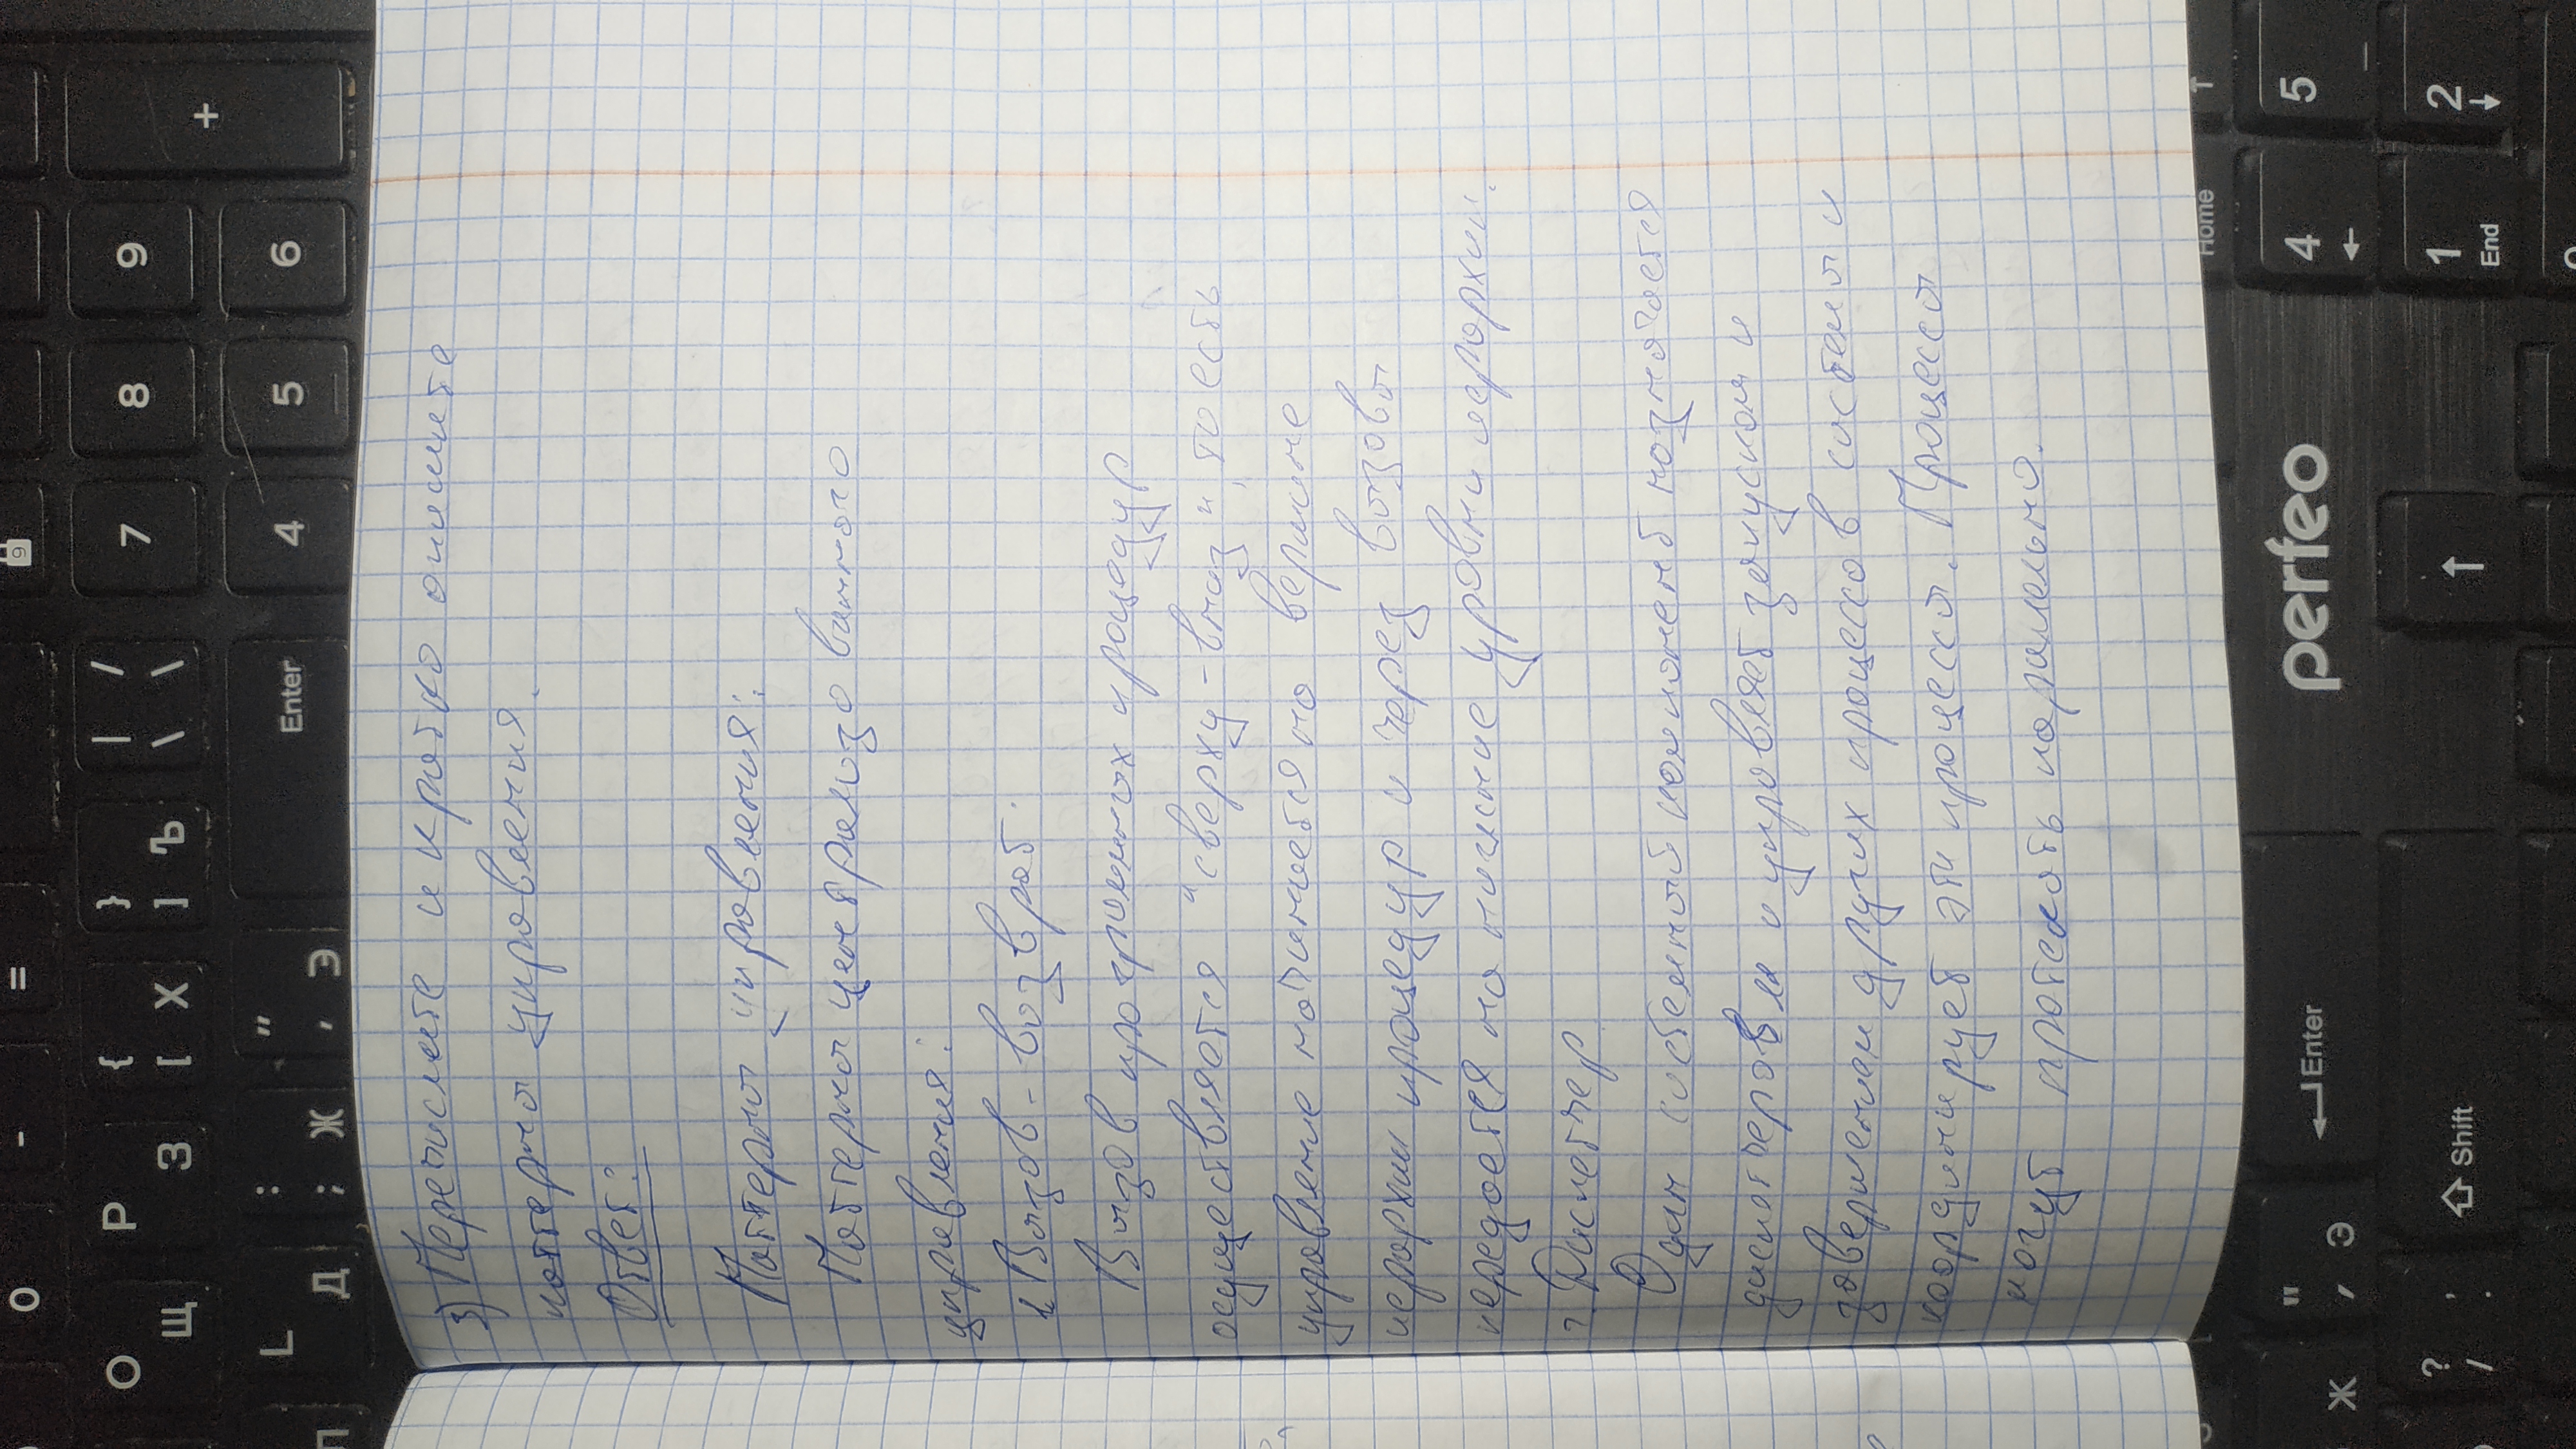 O - = 9
O Щ P З { [ Х } ] Ъ | \ / \ 7 8 9 +
L Д : ; Ж " ' Э Enter 4 5 6
3) Перечислите и кратко опишите
паттерны управления.
Ответ:
Паттерны управления:
Паттерны централизованного
управления:
1. Вызов-возврат.
Вызов программных процедур
осуществляется "сверху-вниз", то есть
управление начинается на вершине
иерархии процедур и через вызовы
передается на нижние уровни иерархии.
2. Диспетчер.
Один системный компонент назначается
и управляет запуском и
завершением других процессов системы и
координирует эти процессы. Процессы
могут протекать паралельно.
Home ↑
Ж " ' Э Enter perfeo 4 ← 5
? / , . Shift ↑ 1 End 2 ↓